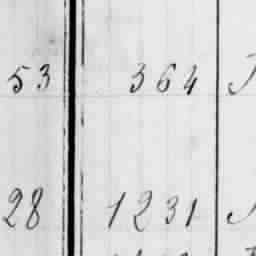 53 364
28 1231